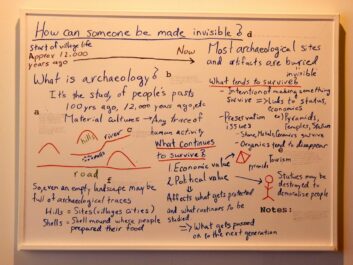 How can someone be made invisible?
a
Start of village life
Approx 12.000
years ago
Now
Most archaeological sites
and artifacts are buried
invisible
What is archaeology?
It's the study of people's pasts
100 yrs ago, 12,000 years ago, etc
Material cultures → Any trace of
human activity
a
hills
river
c
islands
road
So, even an empty landscape may be
full of archaeological traces
Hills = Sites (villages cities)
Shells = Shell mound where people
prepared their food
What tends to survive?
- Intention of making something
survive => Links to status,
economics
- Preservation
issues
Pyramids,
temples, Statues
Stone, Metals, Ceramics survive
- Organics tend to disappear
What continues
to survive?
1. Economic value
2. Political value
Tourism
Affects what gets protected
and what continues to be
studied
=> What gets passed
on to the next generation
Statues may be
destroyed to
demoralise people
Notes: